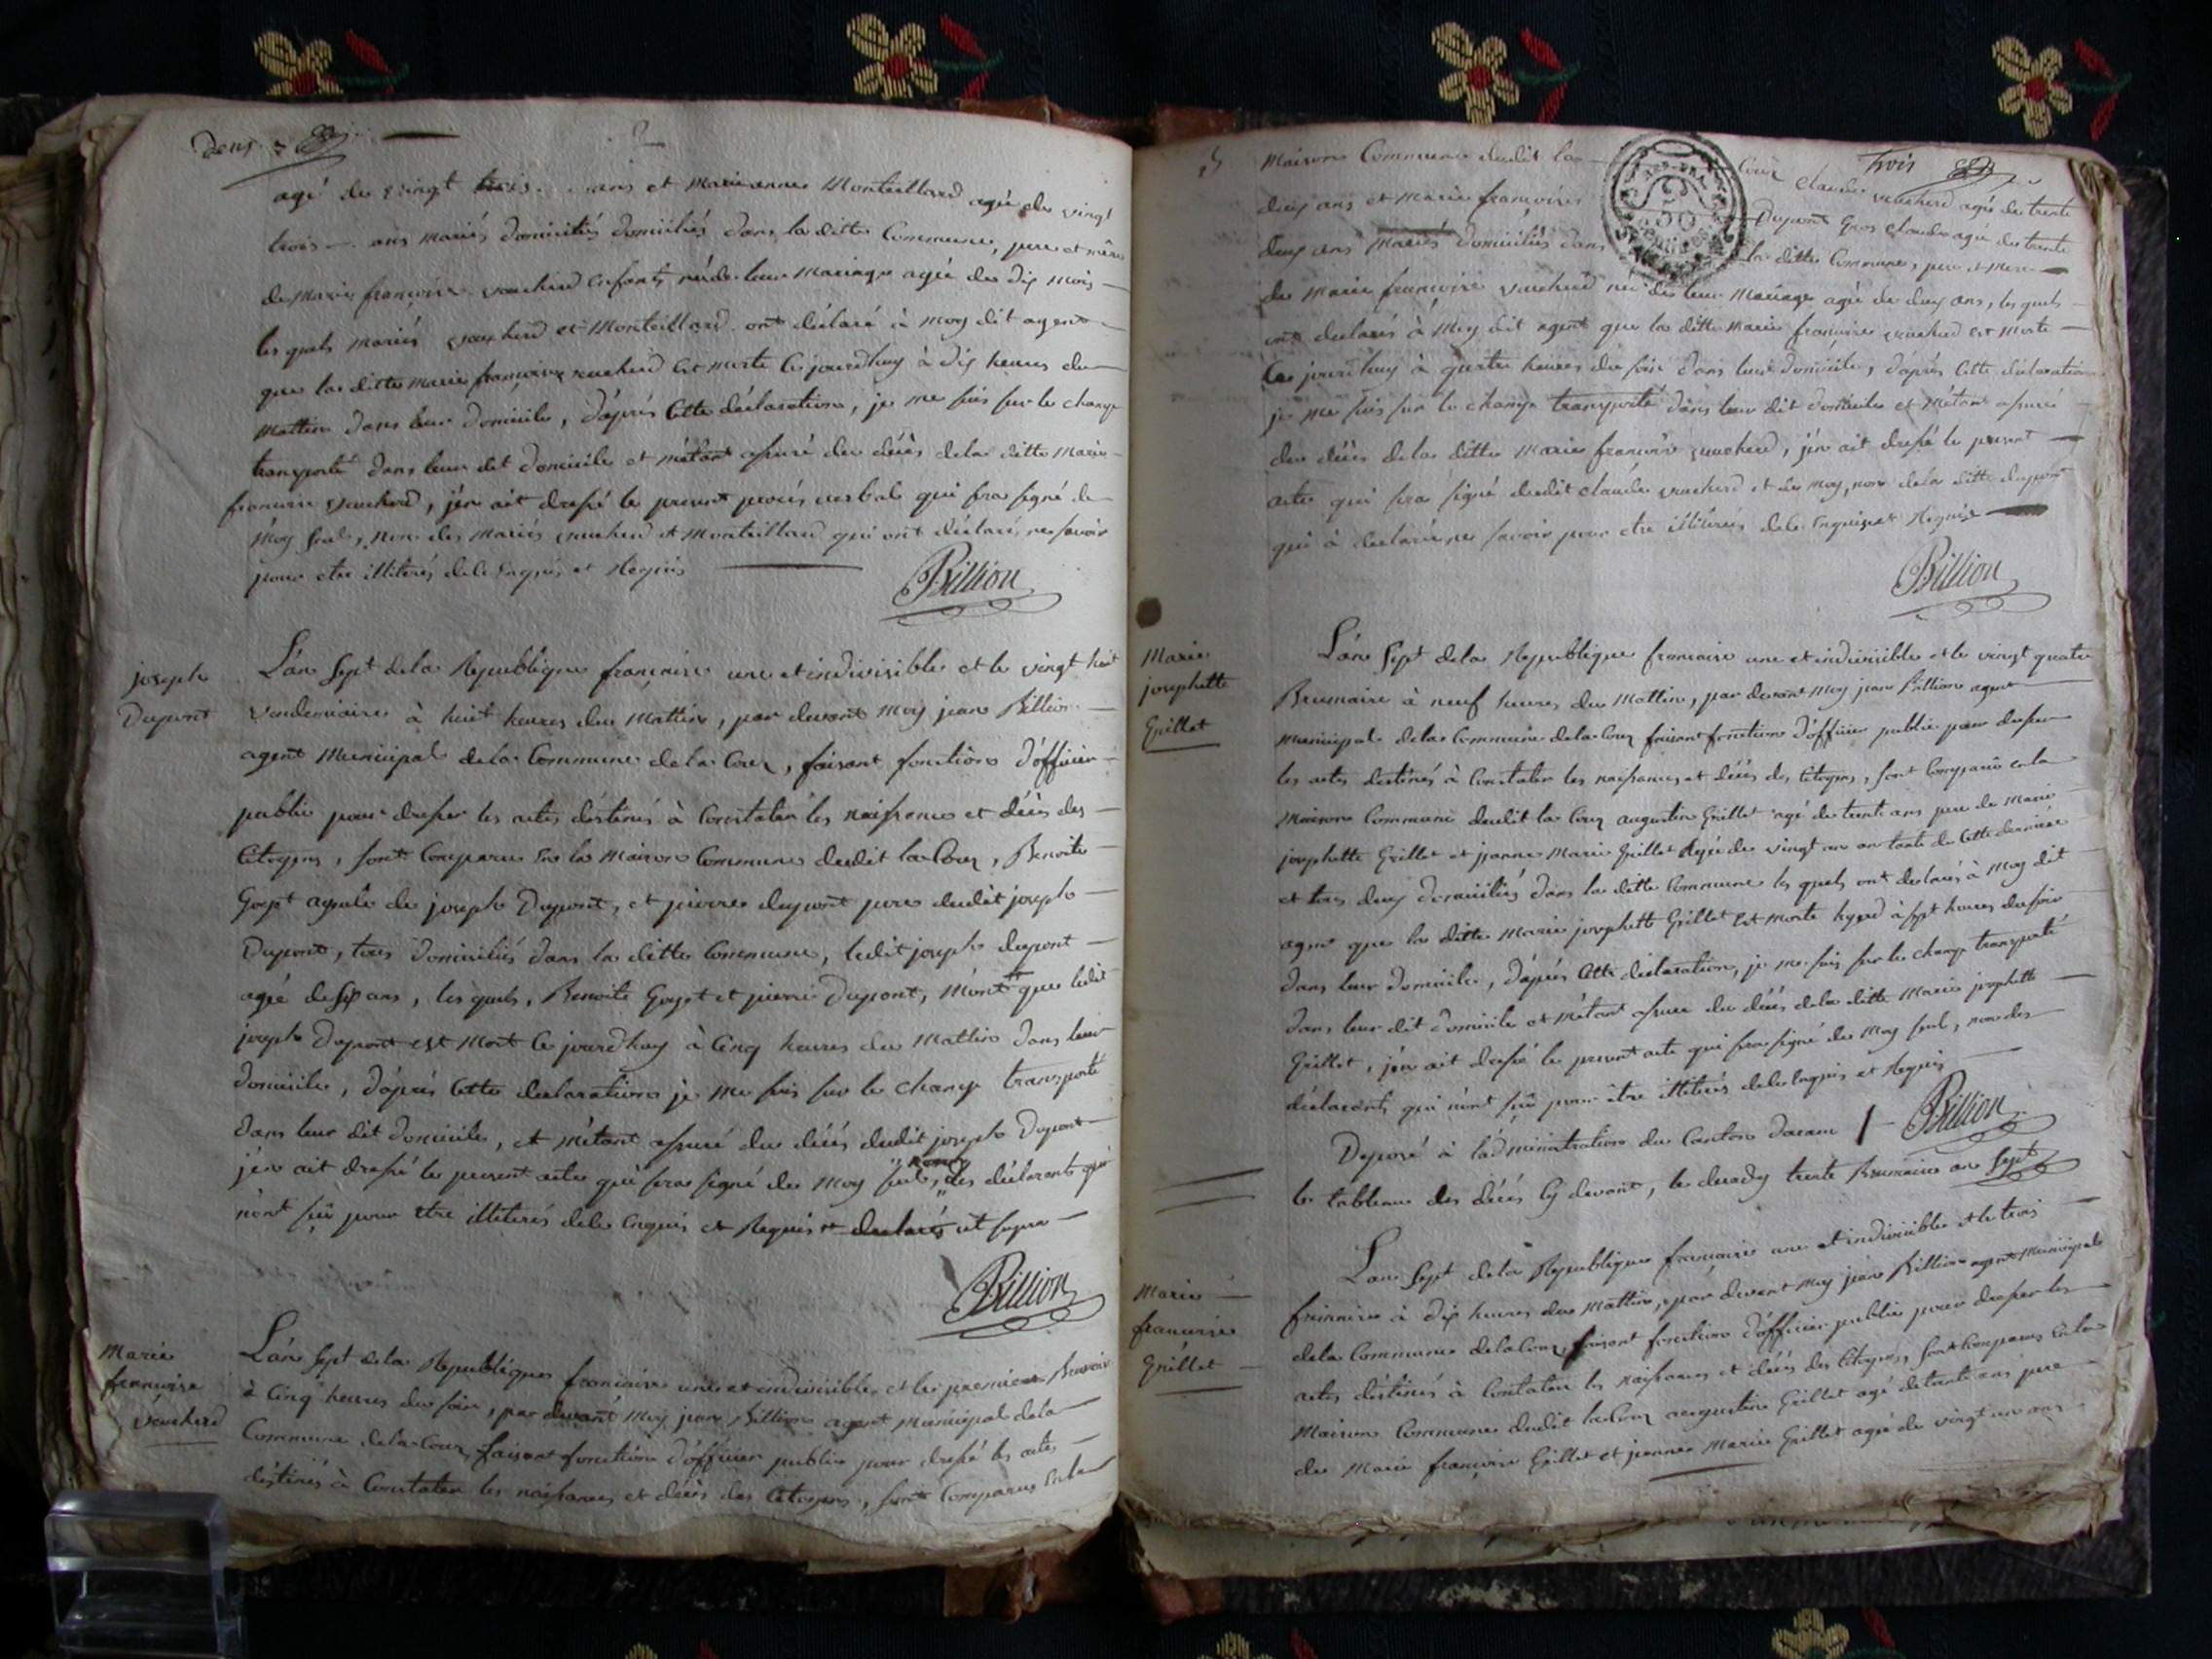 Deux
2
agé de vingt trois ans et marianne Monteillard agée de vingt
trois ans mariés domiciliés domiciliés dans la ditte Commune, pere et mère
de Marie françoise vaucherd enfant née de leur Mariage agée de dix mois
les quels mariés vaucherd et Monteillard ont déclaré à moy dit agent
que la ditte marie françoise vaucherd est morte Ce jourdhuy à dix heures du
mattin dans leur domicile, d'après Cette déclaration, je me suis sur le champ
transporté dans leur dit domicile et métant assuré du décès de la ditte Marie
françoise vaucherd, j'en ait dressé le present procès verbal qui sera signé de
moy seul, non des mariés vaucherd et Monteillard qui ont déclaré ne savoir
pour etre illiterés de le Enquis et Requis
Billion
joseph
Dupont
L'an Sept de la Republique française une et indivisible et le vingt huit
vendemiaire à huit heures du Mattin, par devant moy jean Billion
agent Municipal de la Commune de la Cour, faisant fonction d'officier
public pour dresser les actes déstinés à Constater les naissance et décès des
Citoyens, sont Comparu En la Maison Commune dudit la Cour, Benoite
Goyet ayeule de joseph Dupont, et pierre dupont pere dudit joseph
Dupont, tous domiciliés dans la ditte Commune, ledit joseph dupont
agé de six ans, les quels, Benoite Goyet et pierre Dupont, m'ont que ledit
joseph Dupont est Mort Ce jourdhuy à Cinq heures du Mattin dans leur
domicile, d'après Cette declaration je me suis sur le champ transporté
dans leur dit domicile, et métant assuré du décés dudit joseph Dupont
j'en ait dressé le present acte qui sera signé de moy seul, non des déclarants qui
n'ont sçû pour etre illiterés de le Enquis et Requis et declarés ut supra
Billion
Marie
françoise
vaucherd
L'an Sept de la Republique francaise une et indivisible et le premier Brumaire
à Cinq heures du soir, par devant Moy jean Billion agent municipal de la
Commune de la Cour, faisant fonction d'officier public pour dressé les actes
déstinés à Constater les naissances et décés des Citoyens, sont Comparus En la
trois
Maison Commune dudit la Cour claude vaucherd agé de trente
deux ans et Marie françoise Dupont Gros claude agée de trente
deux ans Mariés domiciliés dans la ditte Commune, pere et Mere
de Marie françoise vaucherd née de leur Mariage agée de deux ans, les quels
ont declarés à Moy dit agent que la ditte Marie françoise vaucherd est morte
Ce jourd'huy à quatre heures du soir dans leur domicile, d'après Cette declaration
je me suis sur le champ transporté dans leur dit domicile et Métant assuré
du décès de la ditte Marie françoise vaucherd, j'en ait dressé le present
acte qui sera signé dudit claude vaucherd et de moy, non de la ditte dupont
qui à declaré ne savoir pour etre illiterée de le Enquise et Requise
Billion
Marie
josephette
Grillet
L'an Sept de la Republique francaise une et indivisible et le vingt quatre
Brumaire à neuf heures du Mattin, par devant Moy jean Billion agent
municipal de la Commune de la Cour faisant fonction d'officier public pour dresser
les actes destinés à Constater les naissances et décés des Citoyens, sont Comparu en la
Maison Commune dudit la Cour augustin Grillet agé de trente ans pere de Marie
josephette Grillet et jeanne Marie Grillet agée de vingt un an tante de Cette derniere
et tous deux domiciliés dans la ditte Commune les quels ont declarés à Moy dit
agent que la ditte Marie josephette Grillet est morte hyerd à sept heures du soir
dans leur domicile, d'après Cette déclaration, je me suis sur le champ transporté
dans leur dit domicile et métant assuré du décés de la ditte Marie josephette
Grillet, j'en ait dressé le present acte qui sera signé de Moy seul, non des
déclarants qui n'ont sçû pour être illiterés de le Enquis et Requis
Billion
Deposé à l'administration du Canton
le tableau des décés Cy devant, le decady trente Brumaire an Sept
Marie
françoise
Grillet
L'an Sept de la Republique française une et indivisible et le trois
frimaire à dix heures du mattin, par devant moy jean Billion agent Municipal
de la Commune de la Cour, faisant fonction d'officier public pour dresser les
actes déstinés à Constater les naissances et décés des Citoyens, sont Comparus en la
Maison Commune dudit la Cour augustin Grillet agé de trente ans pere
de Marie françoise Grillet et jeanne Marie Grillet agée de vingt un ans